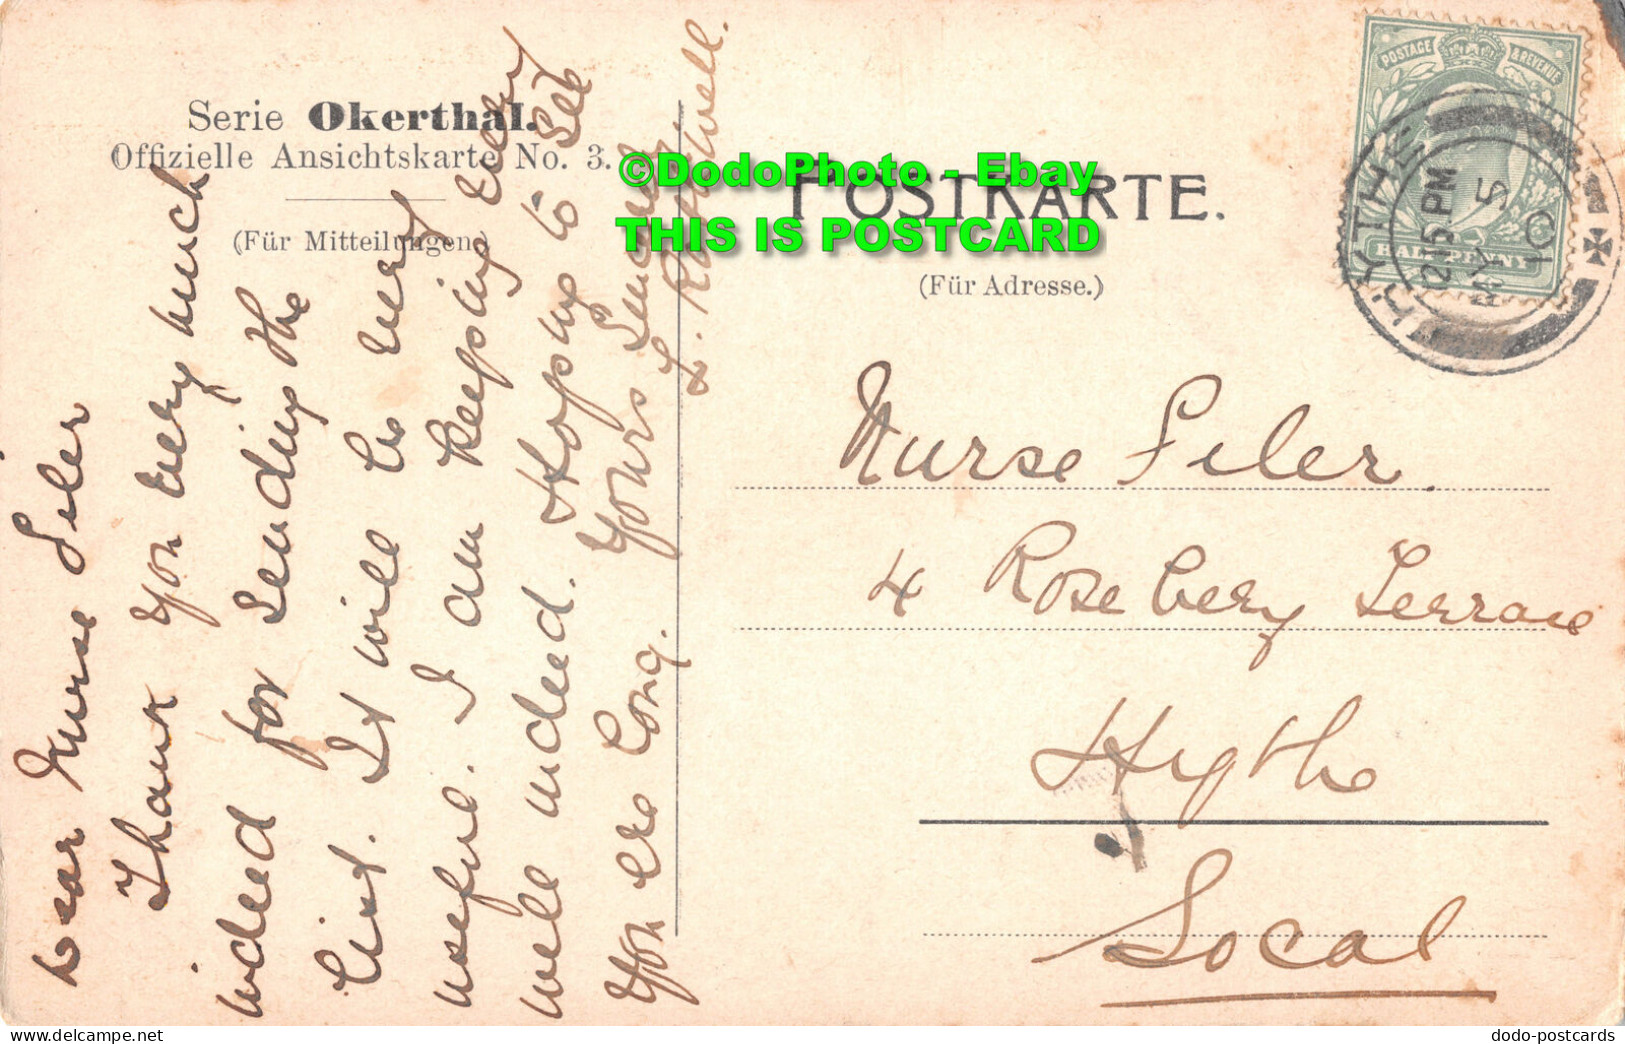 Serie Okerthal.
Offizielle Ansichtskarte No. 3.
(Für Mitteilungen)
Dear Nurse Filer
Thank you very much
indeed for sending the
list. It will be very
useful. I am keeping very
well indeed. Hoping to see
you ere long. Yours Sincerely
L. Rothwell.
©DodoPhoto - Ebay
THIS IS POSTCARD
POSTKARTE.
(Für Adresse.)
POSTAGE & REVENUE
HALFPENNY
HYTHE
215 PM
MY 5
10
Nurse Filer.
4 Rosebery Terrace
Hythe
Local
dodo-postcards